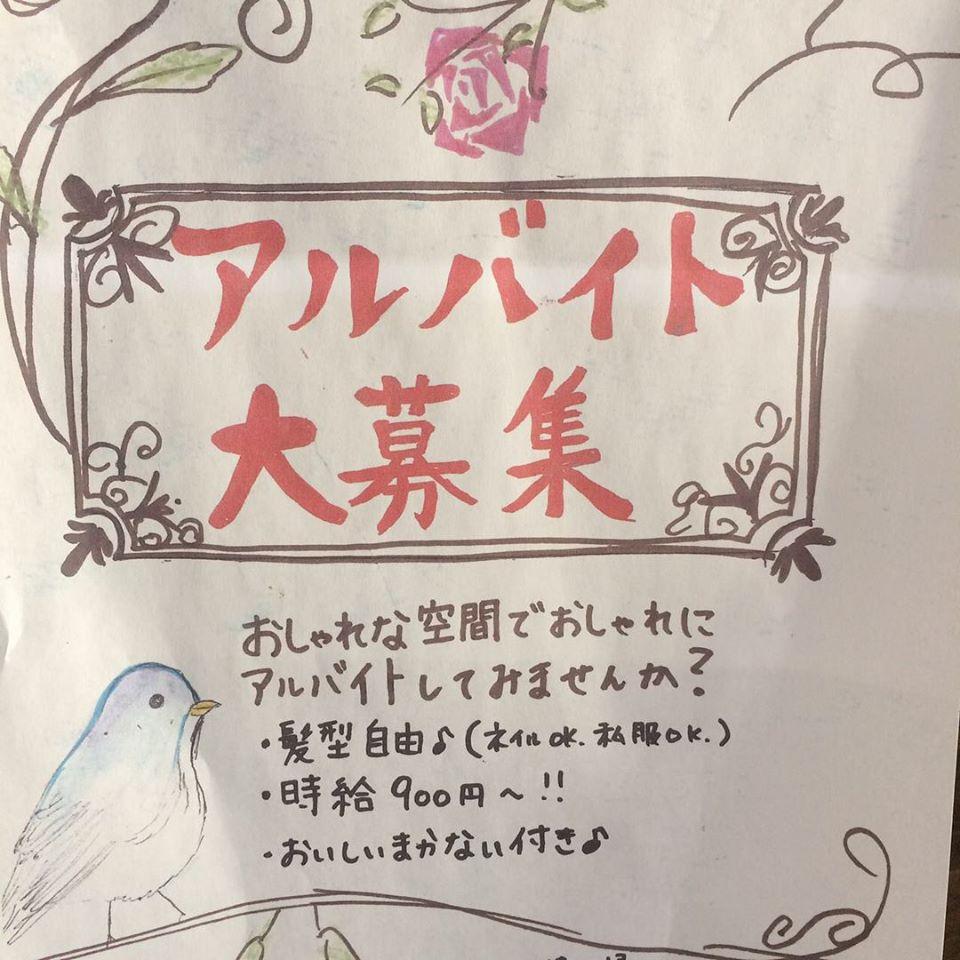 アルバイト
大募集
おしゃれな空間でおしゃれに
アルバイトしてみませんか?
・髪型自由♪(ネイルOK.私服OK.)
・時給900円～!!
・おいしいまかない付き♪